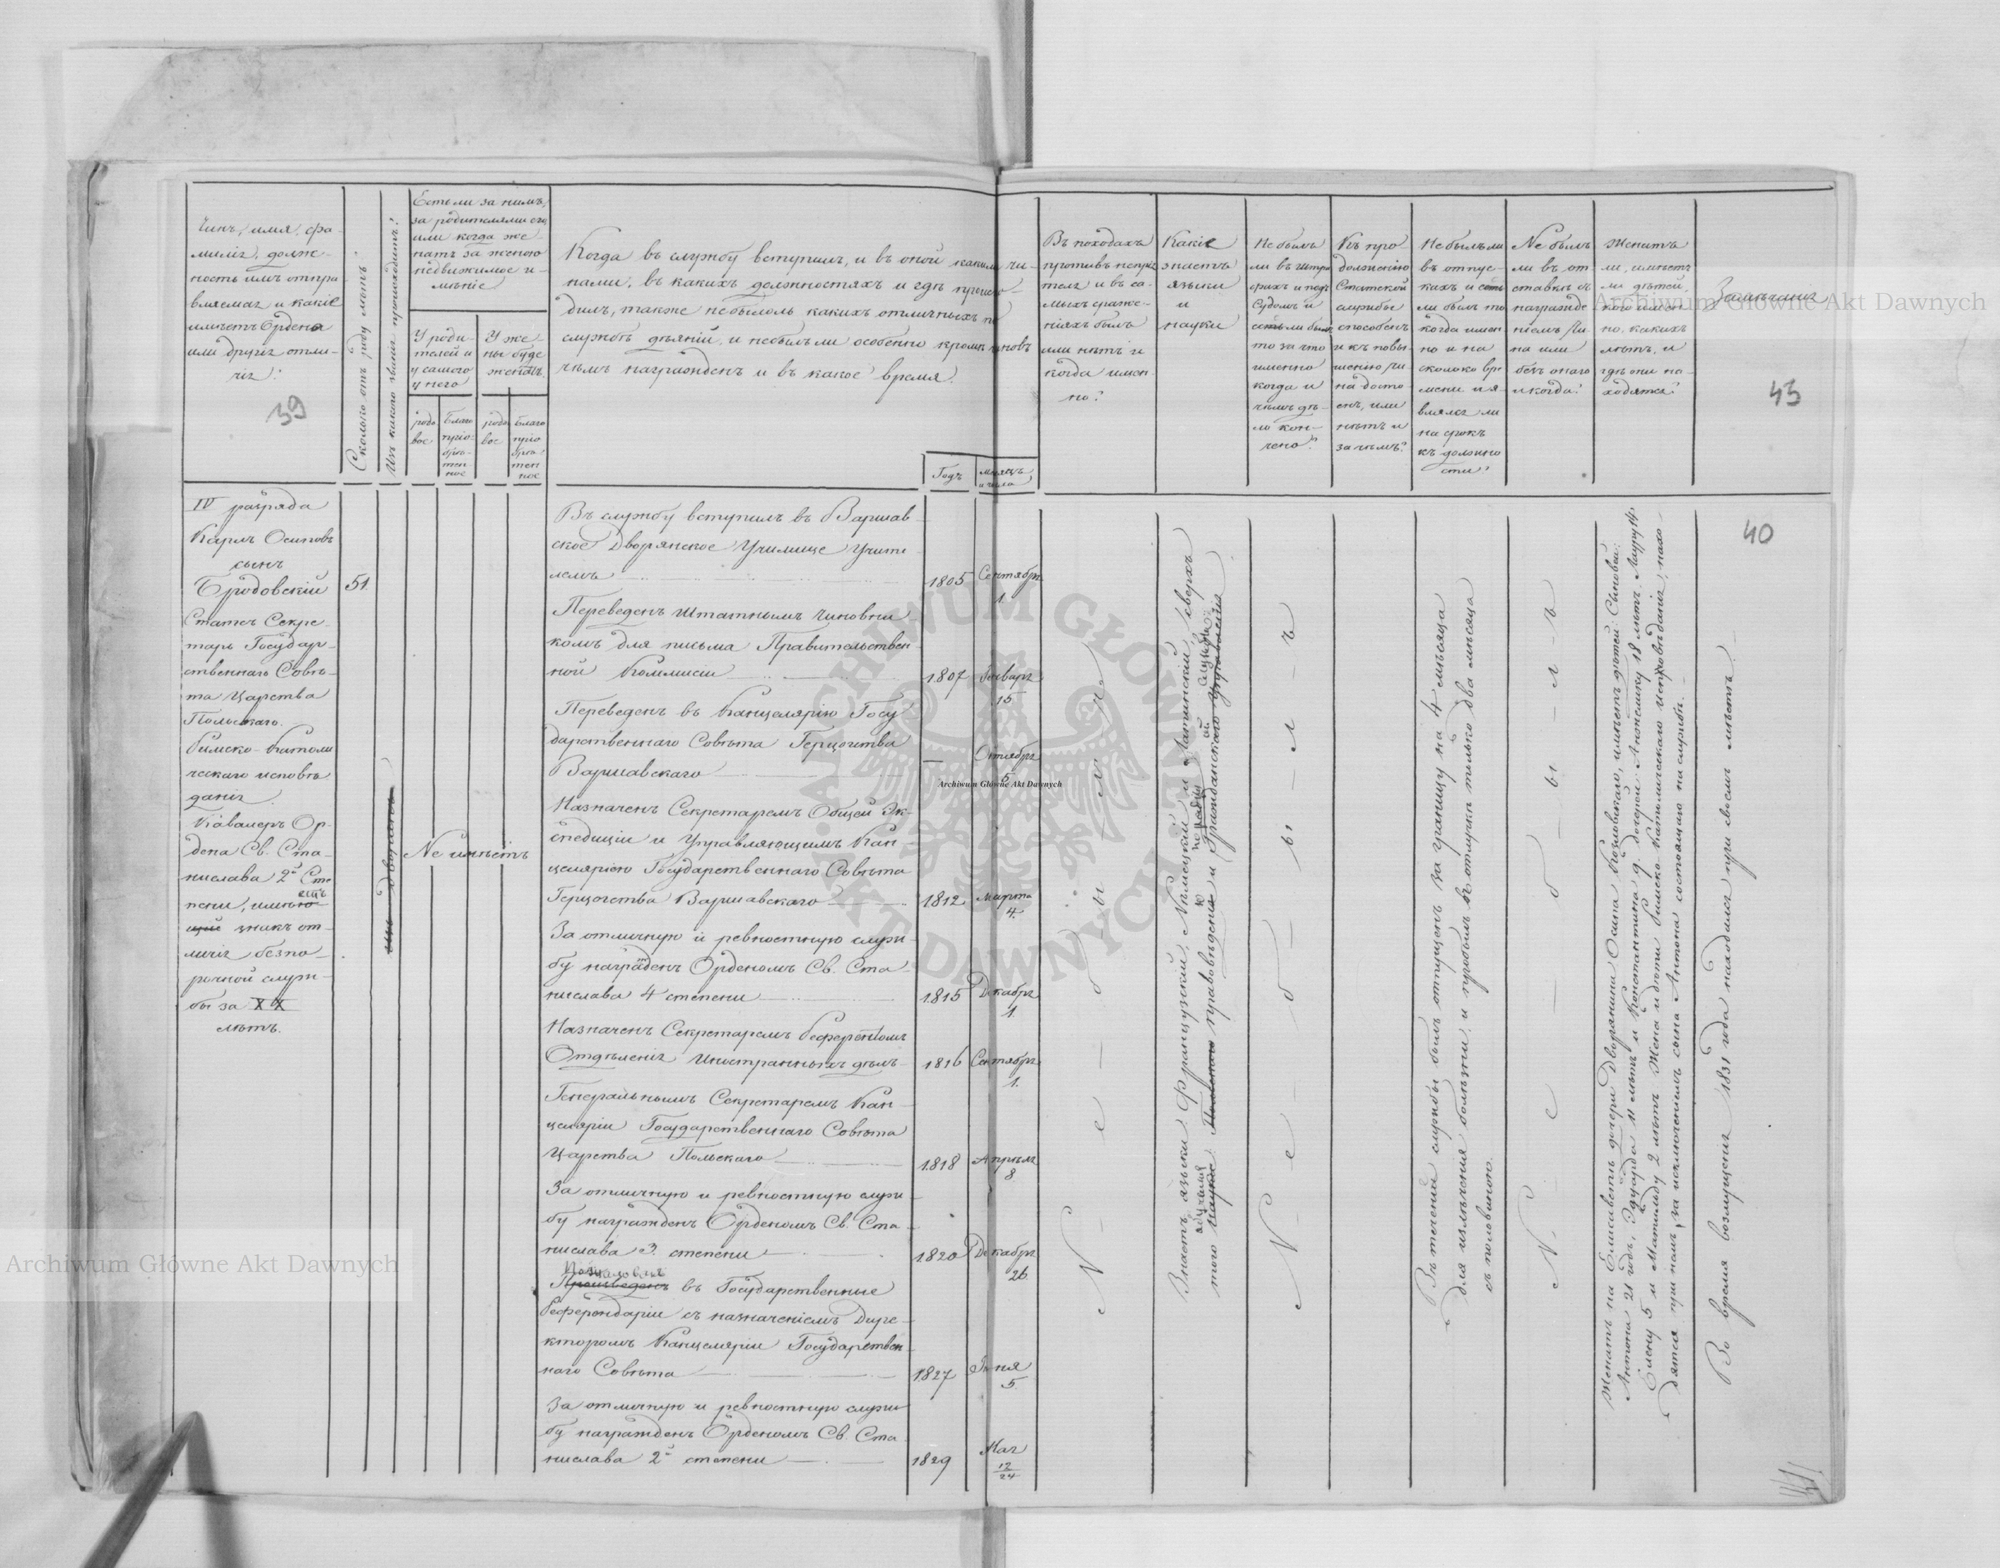 Чинъ, имя, фа-
милія, долж-
ность имъ отпра
вляемая, и какіе
имѣетъ Ордена
или другія отли-
чія?
39
Сколько отъ роду лѣтъ
Изъ какого званія происходитъ?
Есть ли за нимъ,
за родителями его
или когда же-
натъ за женою
недвижимое и-
мѣніе
У роди-
телей и
у самого
у него
У же-
ны буде
женатъ.
родо
вое
благо
пріо-
брѣ-
тен
ное
родо
вое
благо
пріо
брѣ-
тен
ное
Когда въ службу вступилъ, и въ оной какими чи-
нами, въ какихъ должностяхъ и гдѣ происхо-
дилъ, также не было ль какихъ отличныхъ по
службѣ дѣяній, и не былъ ли особенно кромѣ чиновъ
чѣмъ награжденъ и въ какое время?
Годъ
Мѣсяцъ
и числа
Въ походахъ
противъ непрія
теля и въ са-
мыхъ сраже-
ніяхъ былъ
или нѣтъ и
когда имен-
но?
Какіе
знаетъ
языки
и
науки
Не былъ
ли въ штра
фахъ и подъ
Судомъ и
если былъ
то за что
именно
когда и
чѣмъ дѣ-
ло кон-
чено?
Къ про
долженію
Статской
службы
способенъ
и къ повы-
шенію чи
на досто
енъ, или
нѣтъ и
за чѣмъ?
Не былъ ли
въ отпус-
кахъ и если
ли былъ то
когда имен
но и на
сколько вре
мени и я-
влялся ли
на срокъ
къ должно
сти?
Не былъ
ли въ от
ставкѣ съ
награжде
ніемъ чи
на или
безъ онаго
и когда?
Женатъ
ли, имѣетъ
ли дѣтей,
кого имен-
но, какихъ
лѣтъ, и
гдѣ они на-
ходятся?
Замѣчанія
43
IV разряда
Карлъ Осиповъ
сынъ
Бродовскій
Статсъ Секре-
тарь Государ-
ственнаго Совѣ-
та Царства
Польскаго.
Римско-Католи
ческаго исповѣ
данія.
Кавалеръ Ор-
дена Св. Ста-
нислава 2й Сте
етъ
пени, имѣю
щій знакъ от-
личія безпо-
рочной служ-
бы за XX
лѣтъ.
51
изъ дворянъ
Не имѣетъ
Въ службу вступилъ въ Варшав-
ское Дворянское Училище Учите
лемъ
1805 Сентября
1.
Переведенъ штатнымъ чиновни
комъ для письма Правительствен
ной Коммисіи
1807 Января
15
Переведенъ въ Канцелярію Госу
дарственнаго Совѣта Герцогства
Варшавскаго
— Октября
5
Назначенъ Секретаремъ Общей Эк-
спедиціи и Управляющимъ Кан-
целяріею Государственнаго Совѣта
Герцогства Варшавскаго
1812 Марта
4.
За отличную и ревностную служ-
бу награжденъ Орденомъ Св. Ста-
нислава 4 степени
1815 Декабря
1
Назначенъ Секретаремъ Референтомъ
Отдѣленія Иностранныхъ дѣлъ
1816 Сентября
1.
Генеральнымъ Секретаремъ Кан-
целяріи Государственнаго Совѣта
Царства Польскаго
1818 Апрѣля
8
За отличную и ревностную служ-
бу награжденъ Орденомъ Св. Ста-
нислава 3. степени
1820 Декабря
26
Пожалованъ
Произведенъ въ Государственные
Референдаріи съ назначеніемъ Дире-
кторомъ Канцеляріи Государствен
наго Совѣта
1827 Іюня
5
За отличную и ревностную служ-
бу награжденъ Орденомъ Св. Ста
нислава 2й степени
1829 Мая
12
24
Не былъ
Знаетъ языки Французскій, Нѣмецкій и Латинскій, сверхъ
того
Не былъ
Въ теченіи службы былъ отпущенъ за границу на 4 мѣсяца
для излѣченія болѣзни, и пробылъ въ отлучкѣ только два мѣсяца
съ половиною.
Не былъ
Женатъ на Елисаветѣ дочери дворянина Осипа Козловскаго, имѣетъ дѣтей: Сыновей:
Антона 21 годъ, Эдуарда 11 лѣтъ и Константина 9. дочерей Анжелику 18 лѣтъ. Лауру 14.
Елену 5 и Матильду 2 лѣтъ. Жена и дѣти Римско Католическаго исповѣданія, нахо-
дятся при немъ, за исключеніемъ сына Антона состоящаго на службѣ.
40
Во время возмущенія 1831 года находился при своемъ мѣстѣ.
Archiwum Główne Akt Dawnych
Archiwum Główne Akt Dawnych
Archiwum Główne Akt Dawnych
ARCHIWUM GŁÓWNE AKT DAWNYCH